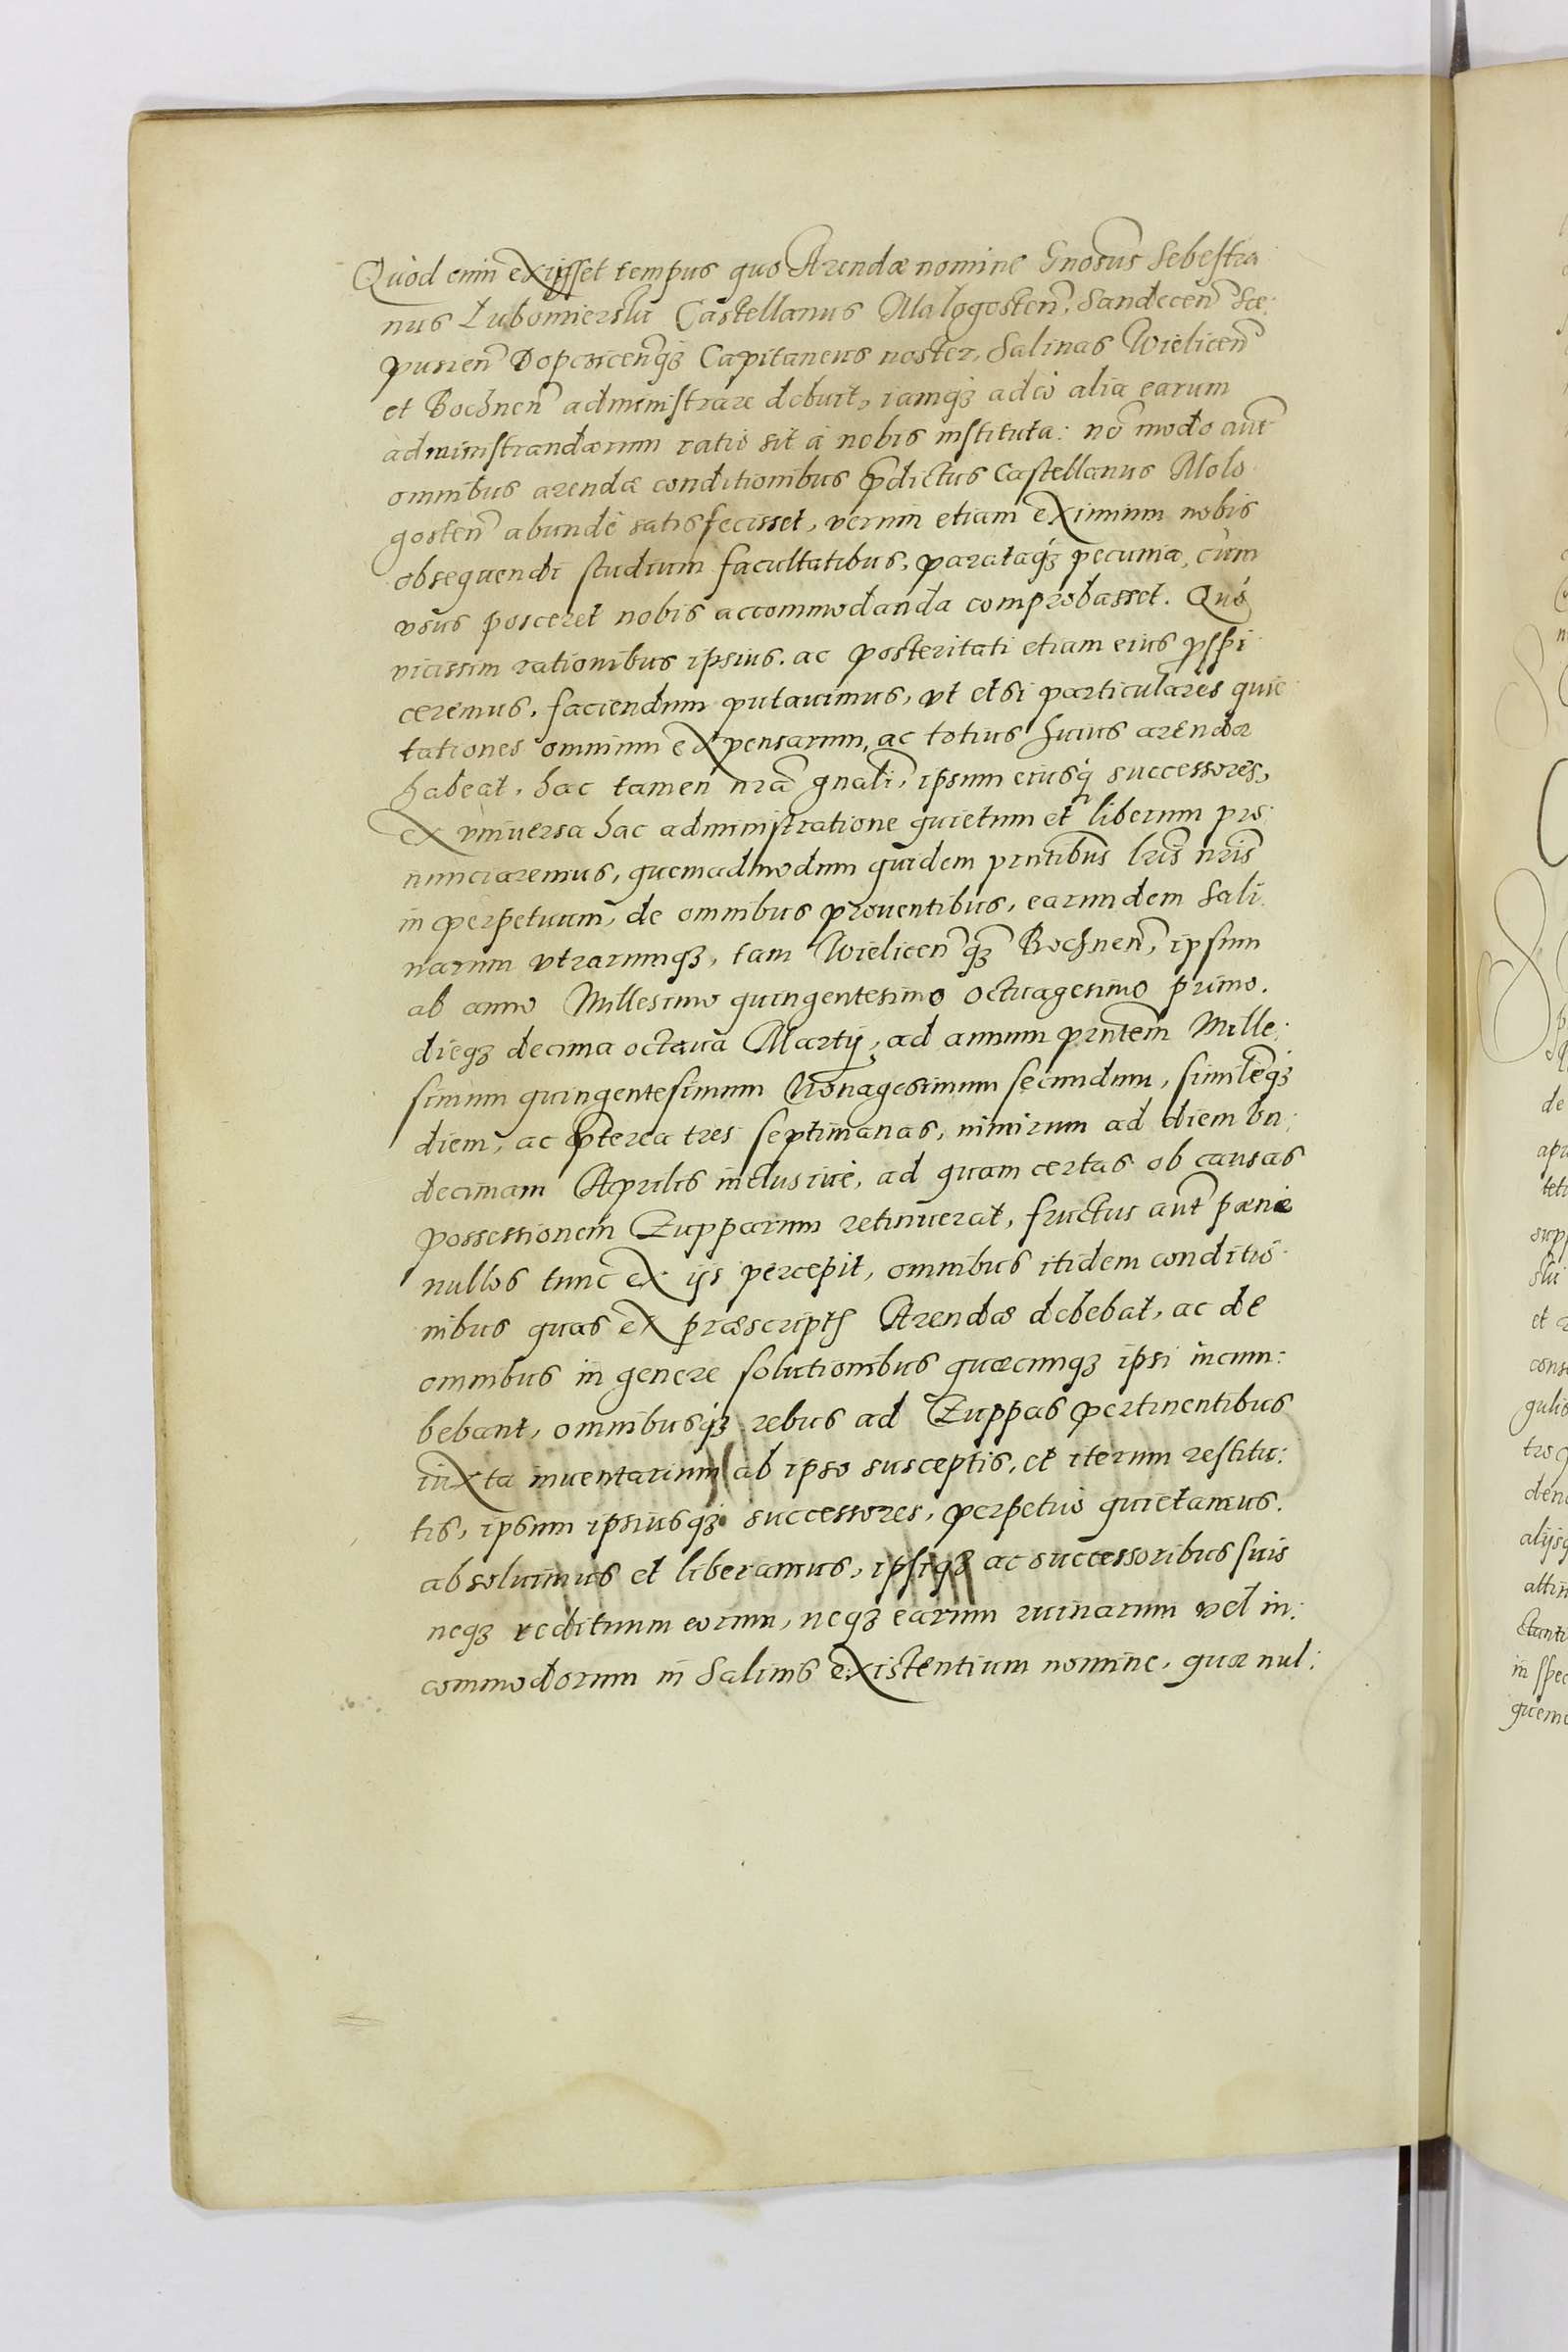 Quòd enim exijsset tempus quo Arendæ nomine Gnosus Sebestia
nus Lubomierski Castellanus Malogosten, Sandecen Sce:
pusien Dopczicenq3 Capitaneus noster, Salinas Wielicen
et Bochnen administrare debuit, iamq3 adeò alia earum
administrandarum ratio sit à nobis instituta: no modo aut
omnibus arendæ conditionibus pdictus Castellanus Molo
gosten abundè satisfecisset, verum etiam eximium nobis
obsequendi studium facultatibus, parataq3 pecunia, cùm
vsus posceret nobis accommodanda comprobasset. Quò
vicissim rationibus ipsius. ac posteritati etiam eius pspi
ceremus, faciendum putauimus, vt etsi particulares quie
tationes omnium expensarum, ac totius huius arendæ
habeat, hac tamen nra gnali, ipsum eiusq successores,
ex vniuersa hac administratione quietum et liberum pro:
nunciaremus, quemadmodum quidem pntibus lris nris
in perpetuum, de omnibus prouentibus, earundem Sali
narum vtrarumq3, tam Wielicen q3 Bochnen, ipsum
ab anno Millesimo quingentesimo octuagesimo primo.
dieq3 decima octaua Martij, ad annum pntem Mille:
simum quingentesimum Nonagesimum secundum, simileq3
diem, ac pterea tres septimanas, nimirum ad diem vn:
decimam Aprilis inclusiuè, ad quam certas ob causas
possessionem Zupparum retinuerat, fructus aut pæne
nullos tunc ex ijs percepit, omnibus itidem conditio
nibus quas ex præscripto Arendæ debebat, ac de
omnibus in genere solutionibus quæcunq3 ipsi incum:
bebant, omnibusq3 rebus ad Zuppas pertinentibus
iuxta inuentarium ab ipso susceptis, et iterum restitu:
tis, ipsum ipsiusq3 successores, perpetuò quietamus.
absoluimus et liberamus, ipsiq3 ac successoribus suis
neq3 redituum eorum, neq3 earum ruinarum vel in:
commodorum in Salinis existentium nomine, quæ nul: